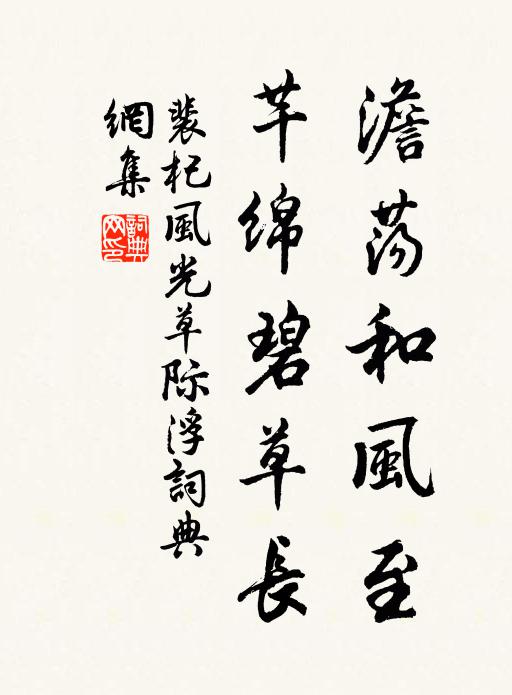 澹蕩和風至
芊綿碧草長
裴杞風光草际浮詞典
網集
詞典
网印